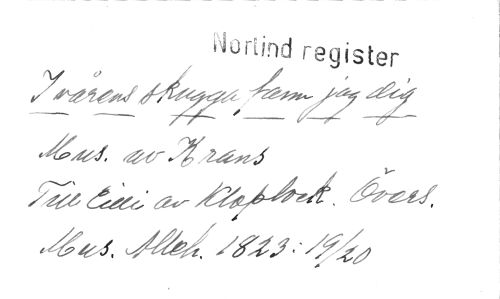 Norlind register
I vårens skugga fann jag dig
Mus. av Krans
Till Cilli av Klopstock. Övers.
Mus. Alleh. 1823: 19/20